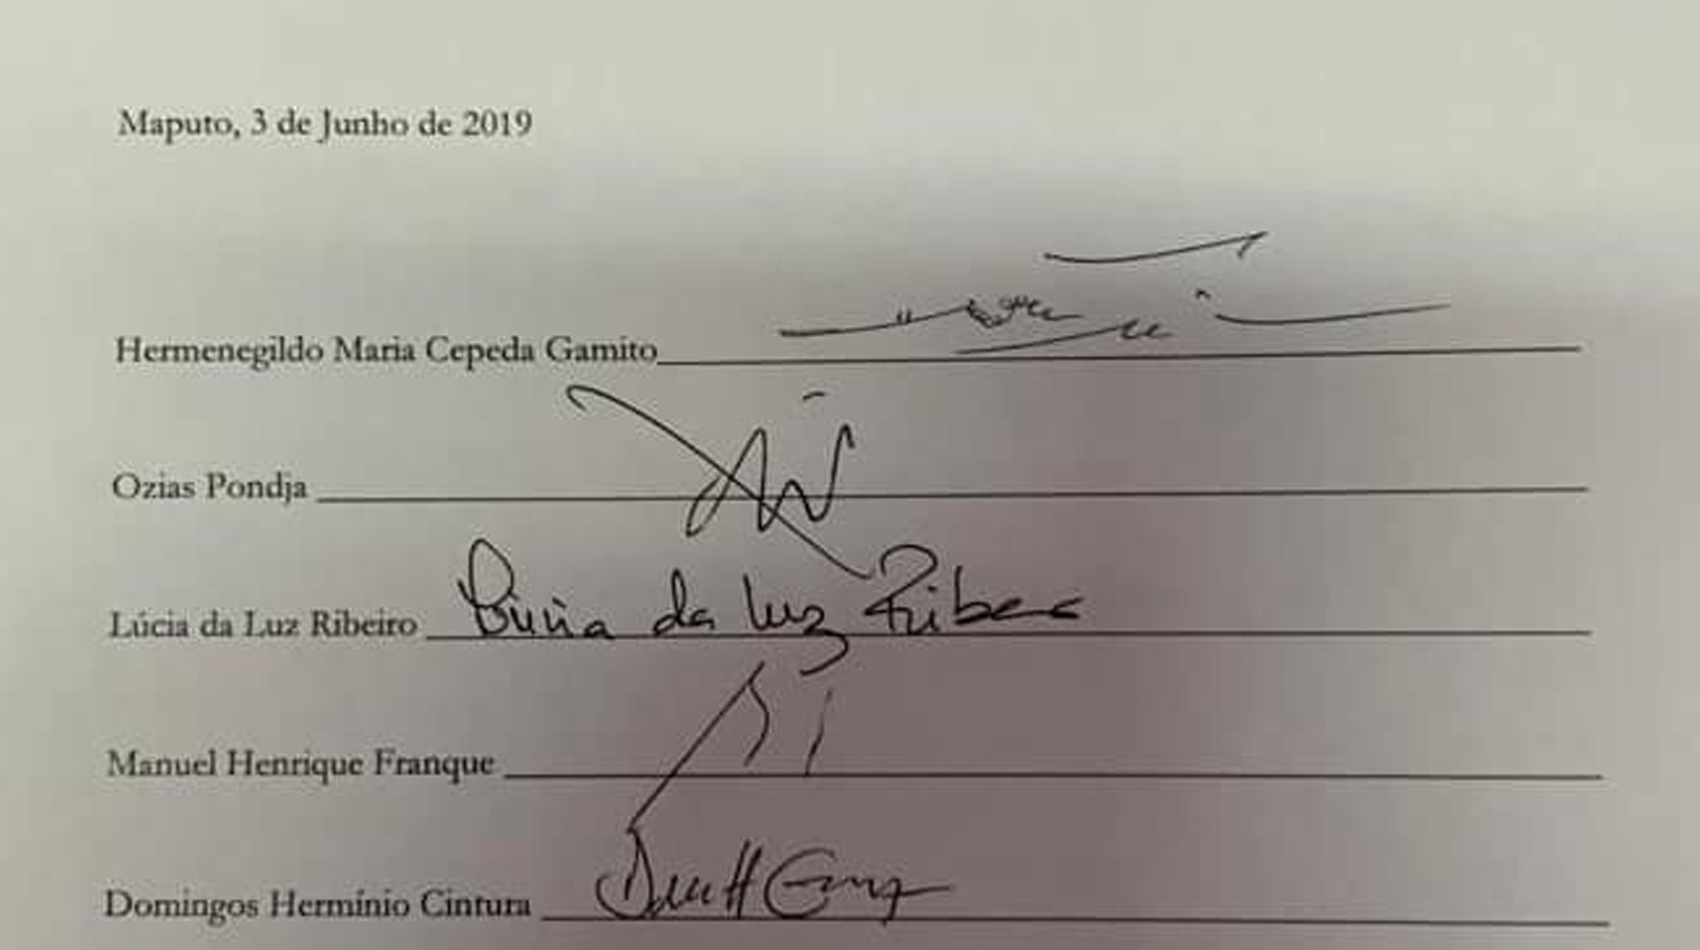 Maputo, 3 de Junho de 2019
Hermenegildo Maria Cepeda Gamito
Ozias Pondja
Lúcia da Luz Ribeiro Lúcia da Luz Ribeiro
Manuel Henrique Franque
Domingos Hermínio Cintura